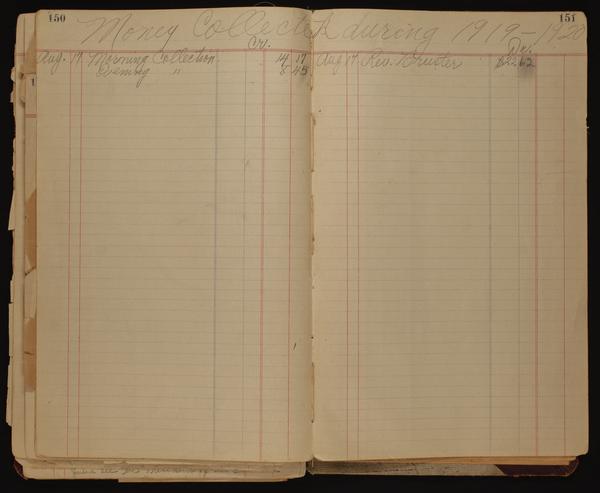 150
151
Money Collected during 1919-1920
Cr.
Dr.
Aug. 17 Morning Collection 14 17
Evening " 8 45
Aug 17 Rev. 22 62